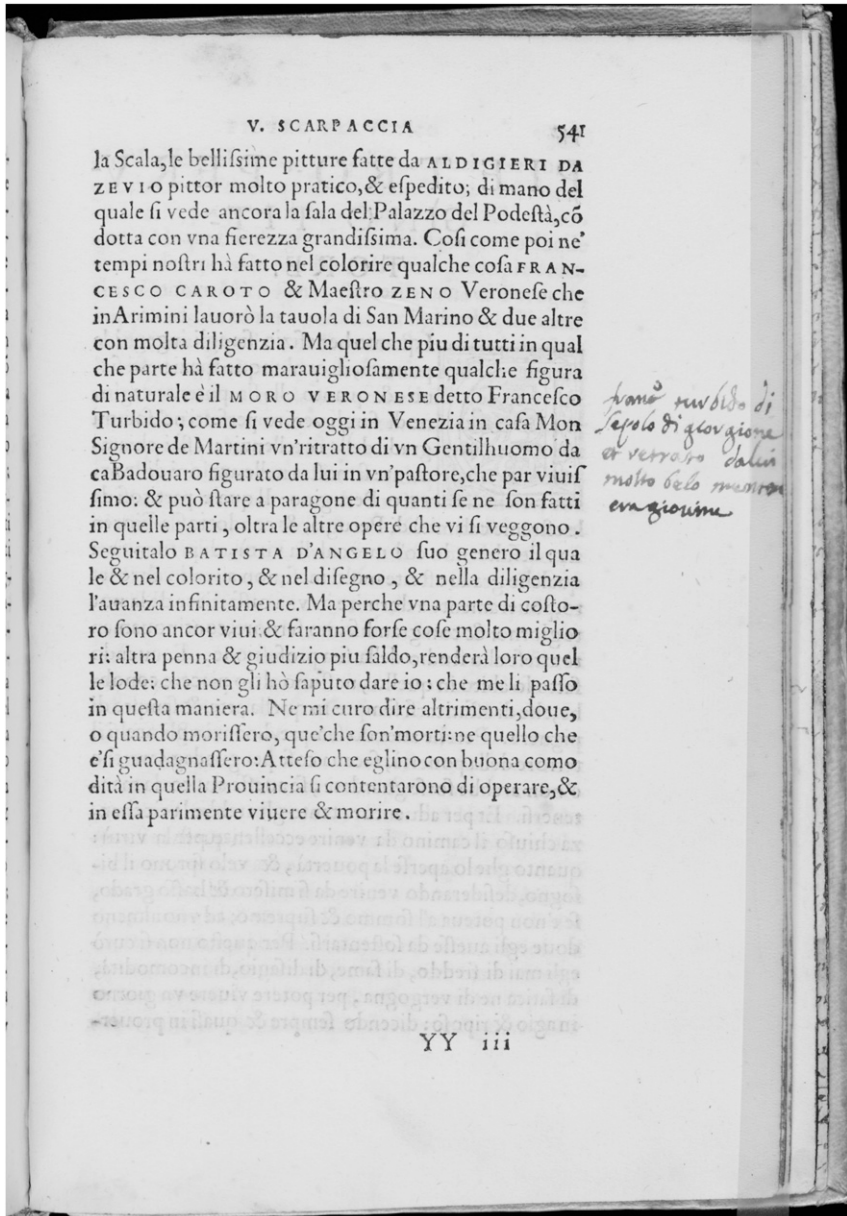 V. SCARPACCIA 541
la Scala,le belliſsime pitture fatte da ALDIGIERI DA
ZEVIO pittor molto pratico,& eſpedito; di mano del
quale ſi vede ancora la ſala del Palazzo del Podeſtà,cõ
dotta con vna fierezza grandiſsima. Coſi come poi ne'
tempi noſtri hà fatto nel colorire qualche coſa FRAN-
CESCO CAROTO & Maeſtro ZENO Veroneſe che
in Arimini lauorò la tauola di San Marino & due altre
con molta diligenzia. Ma quel che piu di tutti in qual
che parte hà fatto marauiglioſamente qualche figura
di naturale è il MORO VERONESE detto Franceſco
Turbido; come ſi vede oggi in Venezia in caſa Mon
Signore de Martini vn'ritratto di vn Gentilhuomo da
caBadouaro figurato da lui in vn'paſtore,che par viuiſ
ſimo: & può ſtare a paragone di quanti ſe ne ſon fatti
in quelle parti, oltra le altre opere che vi ſi veggono.
Seguitalo BATISTA D'ANGELO ſuo genero il qua
le & nel colorito, & nel diſegno, & nella diligenzia
l'auanza infinitamente. Ma perche vna parte di coſto-
ro ſono ancor viui & faranno forſe coſe molto miglio
ri: altra penna & giudizio piu ſaldo,renderà loro quel
le lode: che non gli hò ſaputo dare io; che me li paſſo
in queſta maniera. Ne mi curo dire altrimenti,doue,
o quando moriſſero, que'che ſon'morti:ne quello che
e'ſi guadagnaſſero:Atteſo che eglino con buona como
dità in quella Prouincia ſi contentarono di operare,&
in eſſa parimente viuere & morire.
YY iii
di
di giorgione
molto belo